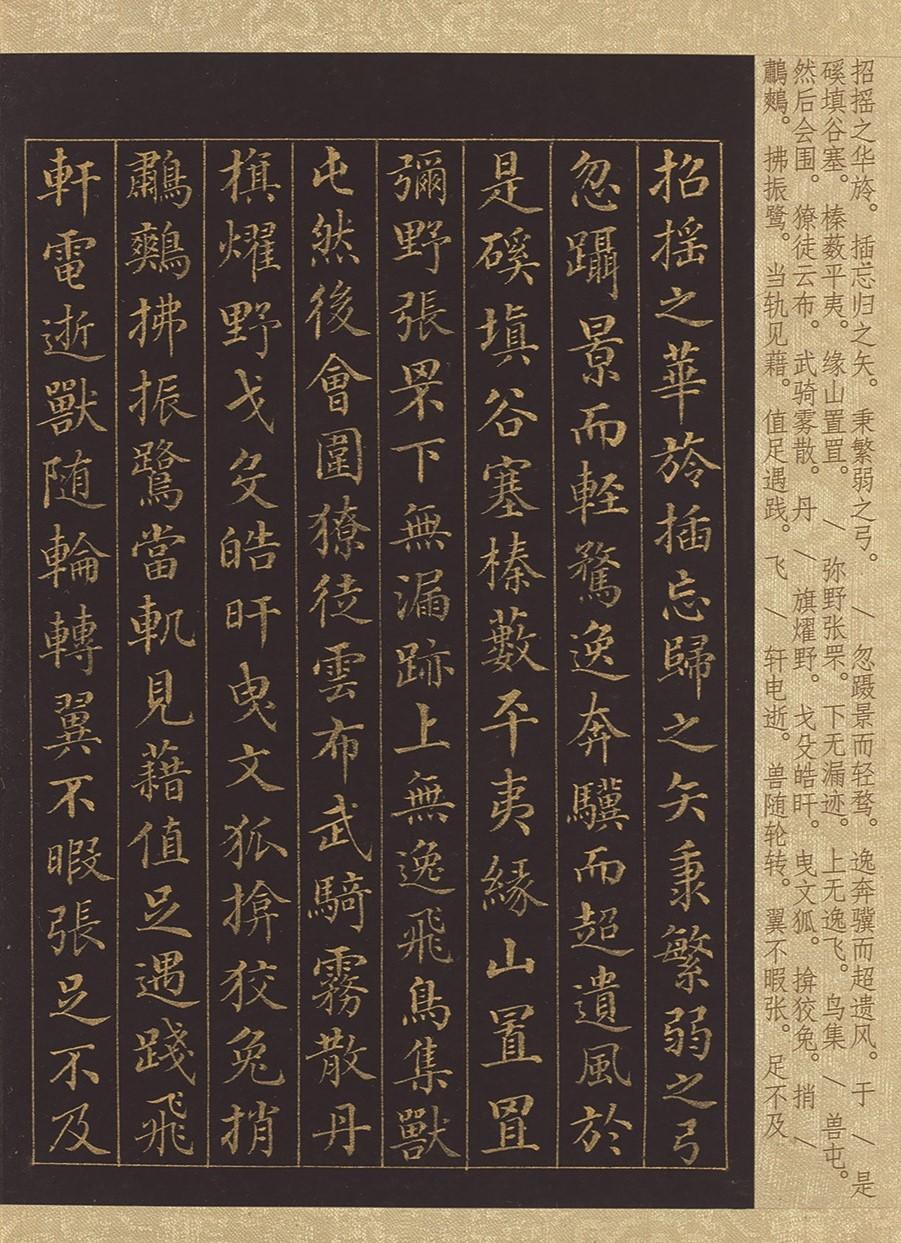 招摇之华旍。插忘归之矢。秉繁弱之弓。/忽蹑景而轻骛。逸奔骥而超遗风。于/是
磎填谷塞。榛薮平夷。缘山置罝。/弥野张罘。下无漏迹。上无逸飞。鸟集/兽屯。
然后会围。獠徒云布。武骑雾散。丹/旗燿野。戈殳皓旰。曳文狐。揜狡兔。捎/
鷫鷞。拂振鹭。当轨见藉。值足遇践。飞/轩电逝。兽随轮转。翼不暇张。足不及
招摇之華旍插忘歸之矢秉繁弱之弓
忽躡景而輕騖逸奔驥而超遺風於
是磎填谷塞榛藪平夷緣山置罝
彌野張罘下無漏跡上無逸飛鳥集獸
屯然後會圍獠徒雲布武騎霧散丹
旗燿野戈殳皓旰曳文狐揜狡兔捎
鷫鷞拂振鷺當軌見藉值足遇踐飛
軒電逝獸随輪轉翼不暇張足不及